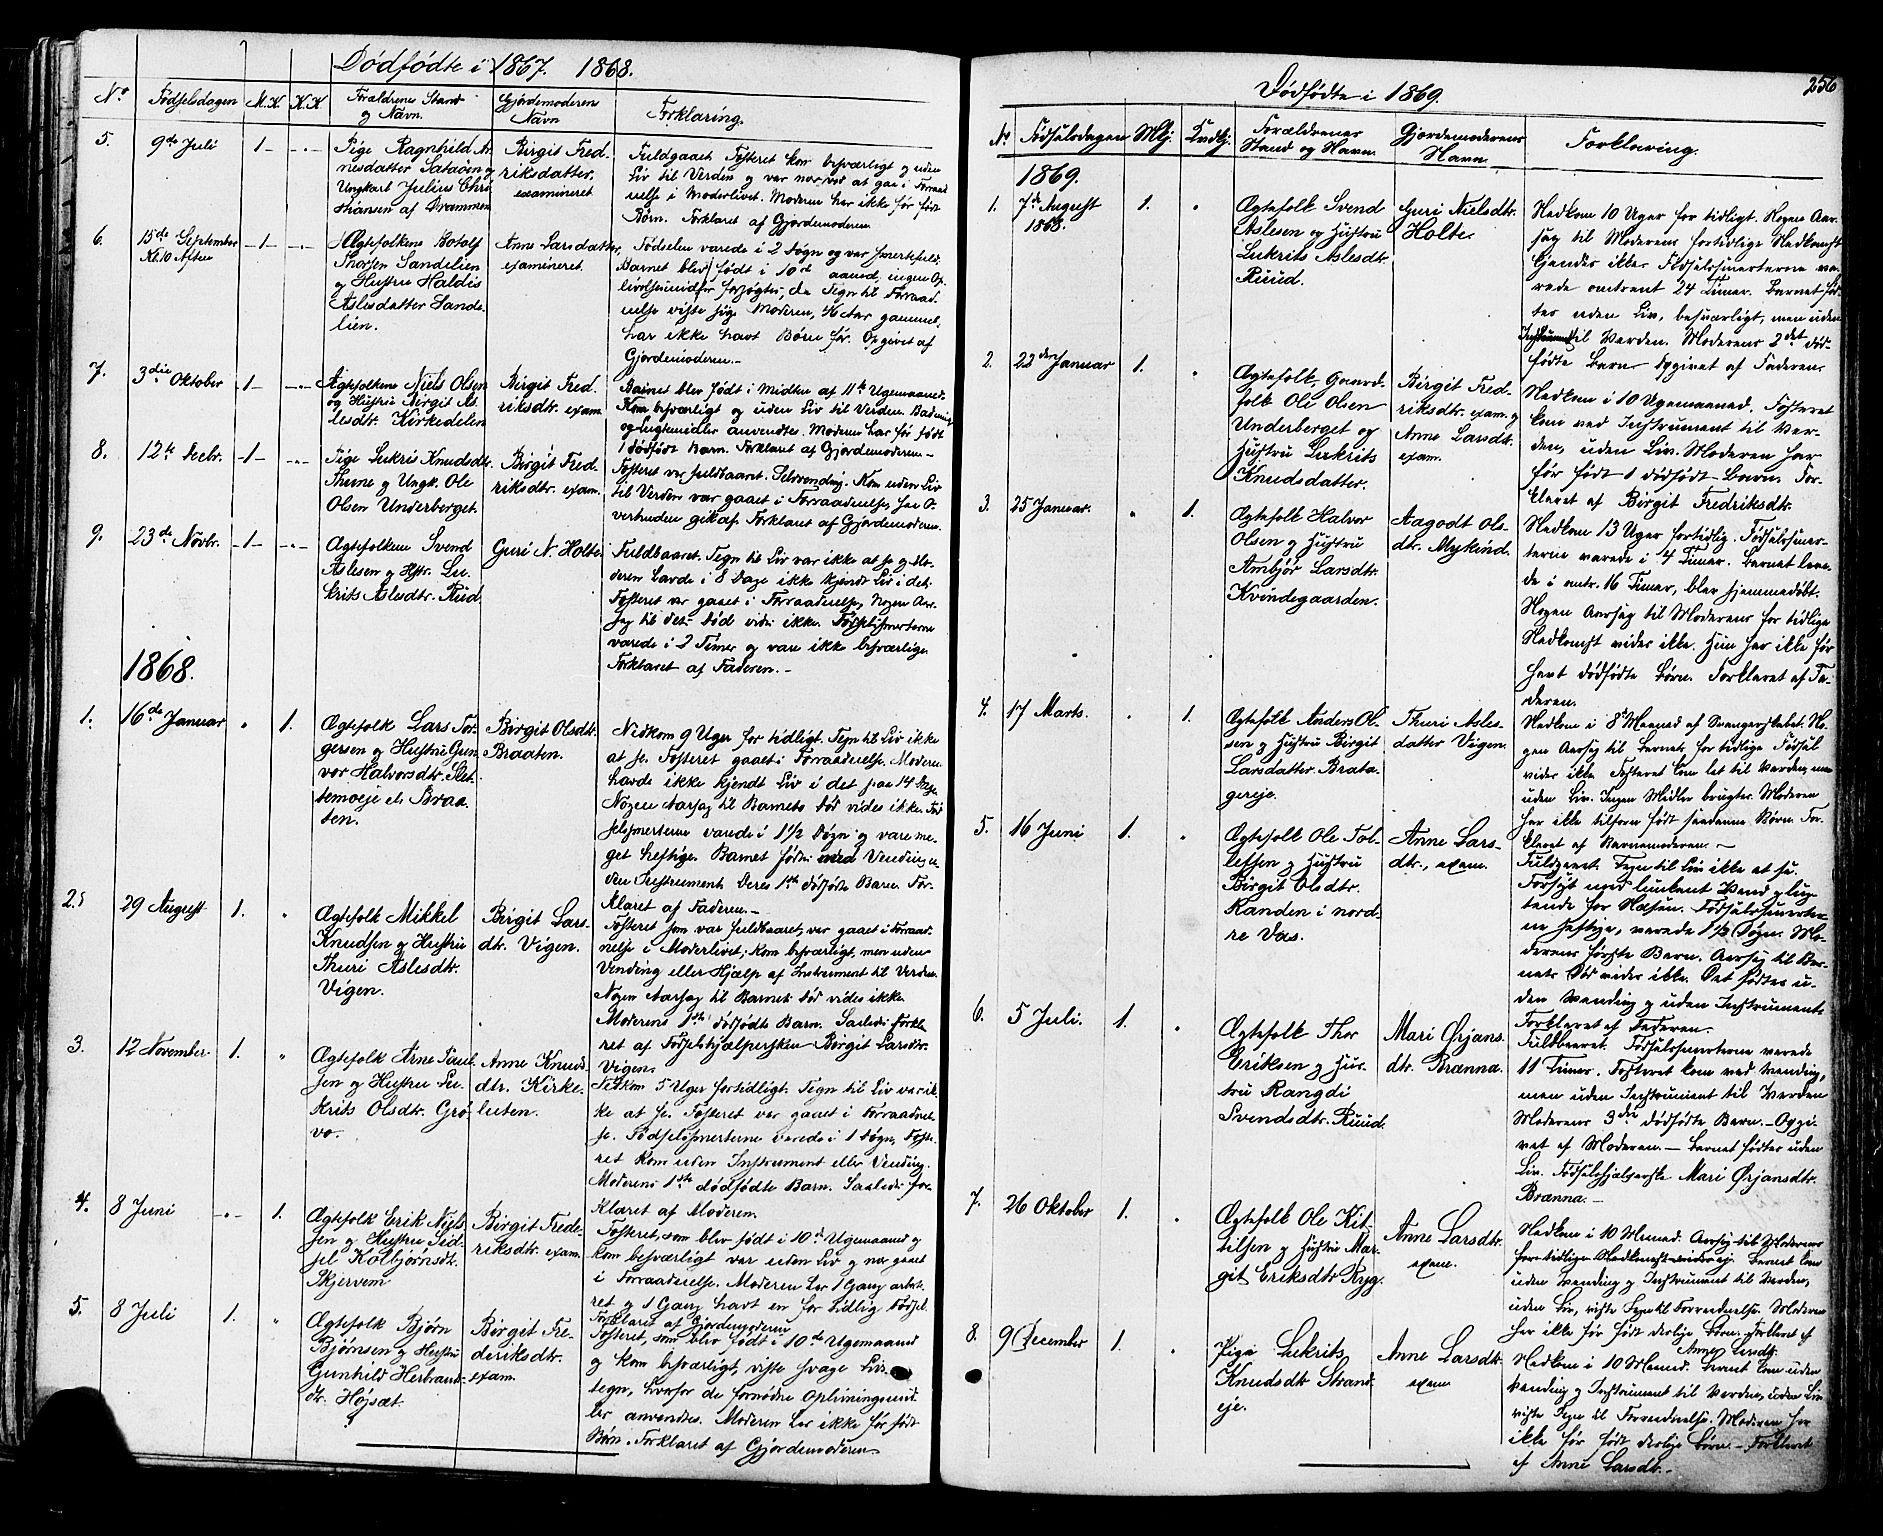 Dødfødte i 1867. 1868.
No Fødselsdagen M.K K.K Forældrenes Stand og Navn. Gjordemoderens Navn Forklaring.
5. 9de Juli 1 -
Pige Ragnhild Ar-
nesdatter Sataøen og
Ungkarl Julius Chri
stiansen af Drammen
Birgit Fred-
riksdatter,
examineret
Fuldgaaet Fosteret kom besværligt og uden
Liv til Verden og var nær ved at gaa i Forraad
nelse i Moderlivet. Moderen har ikke før født
Børn. Forklaret af Gjordemoderen.
6. 15de September Kl. 10 Aften - 1 -
Ægtefolkene Botolf
Thorsen Sandelien
og Hustru Haldis
Aslesdatter Sande-
lien.
Anne Larsdatter,
examineret.
Fødselen varede i 2 Døgn og var smertefuld.
Barnet blev født i 10de Maaned, ingen Op-
livelsesmidler forsøgtes, da Tegn til Forraad-
nelse viste sig. Moderen, 46 Aar gammel,
har ikke havt Børn før. Opgivet af
Gjordemoderen. -
7. 3die Oktober - 1 -
Ægtefolkene Niels Olsen
og Hustru Birgit As-
lesdtr. Kirkedelen
Birgit Fred-
riksdtr. exam.
Barnet blev født i Midten af 11te Ugemaaned.
Kom besværligt og uden Liv til Verden. Badning
og Lugtemidler anvendtes. Moderen har før født
1 dødfødt Barn. Forklaret af Gjordemoderen. -
8. 12te Decbr. - 1 -
Pige Lukris Knudsdtr.
Thune og Ungk. Ole
Olsen Underberget.
Birgit Fred-
riksdtr. exam.
Fosteret var fuldbaaret. Selvvending. Kom uden Liv
til Verden var gaaet i Forraadnelse, saa O-
verhuden gik af. Forklaret af Gjordemoderen.
9. 23de Novbr. - 1 -
Ægtefolkene Svend
Aslesen og Hstr. Lu-
krits Aslesdtr. Rud
Guri N. Holte
Fuldbaaret. Tegn til Liv var ikke at se og Mo-
deren havde i 8 Dage ikke kjendt Liv i det.
Fosteret var gaaet i Forraadnelse, Nogen Aar-
sag til dets Død vides ikke. Fødselssmerterne
varede i 2 Timer og vare ikke besværlige
Forklaret af Faderen. -
1868.
1. 16de Januar 1.
Ægtefolk Lars Tor-
gersen og Hustru Gun-
vor Halvorsdtr. Slet-
temoeje el. Braa-
ten.
Birgit Olsdtr.
Braaten.
Nedkom 9 Uger for tidligt. Tegn til Liv ikke
at se. Fosteret gaaet i Forraadnelse, Moderen
havde ikke kjendt Liv i det paa 14 Dage
Nogen Aarsag til Barnets Død vides ikke. Fød
selssmerterne varede i 1 1/2 Døgn og vare me-
get heftige. Barnet fødtes med Vending u-
den Instrument. Deres 1ste dødfødte Barn. For-
klaret af Faderen. -
2. 29 August 1.
Ægtefolk Mikkel
Knudsen og Hustru
Thuri Aslesdtr.
Vigen.
Birgit Lars-
dtr. Vigen.
Fosteret som var fuldbaaret, var gaaet i Forraad
nelse i Moderlivet; kom besværligt, men uden
Vending eller Hjælp af Instrument til Verden.
Nogen Aarsag til Barnets Død vides ikke
Moderens 1ste dødfødte Barn. Saaledes forkla-
ret af Fødselshjælpersken Birgit Larsdtr.
Vigen.
3. 12 November 1.
Ægtefolk Arne Paul-
sen og Hustru Lu-
krits Olsdtr. Grø-
vo.
Anne Knuds-
dtr. Kirke-
luten.
Nedkom 5 Uger fortidligt. Tegn til Liv var ik-
ke at se. Fosteret var gaaet i Forraadnel-
se. Fødselssmerterne varede i 1 Døgn, Foste-
ret kom uden Instrument eller Vending.
Moderens 1ste dødfødte Barn. Saaledes for-
klaret af Moderen.
4. 8 Juni - 1.
Ægtefolk Erik Niel-
sen og Hustru Sid-
sel Kolbjørnsdtr.
Skjervem
Birgit Frede-
riksdtr. exam.
Fosteret, som blev født i 10de Ugemaaned og
kom besværligt var uden Liv og var gaaet
i Forraadnelse. Moderen har 1 Gang abor-
ret og 1 Gang havt en for tidlig Fødsel.
Forklaret af Gjordemoderen
5. 8 Juli 1.
Ægtefolk Bjørn
Bjørnsen og Hustru
Gunhild Herbrands-
dtr. Højsæt.
Birgit Fre-
deriksdtr.
exam.
Fosteret, som blev født i 10de Ugemaaned
og kom besværligt, viste svage Livs-
tegn, hvorfor de fornødne Oplivningsmid-
ler anvendtes. Moderen har ikke før født
Børn. Forklaret af Gjordemoderen
256
Dødfødte i 1869.
Nr. Fødselsdagen Mkj. Kvdkj. Forældrenes Stand og Navn. Gjordemoderens Navn. Forklaring.
1869.
1. 7de August 1868. 1.
Ægtefolk Svend
Aslesen og Hustru
Lukrits Aslesdtr.
Ruud.
Guri Nielsdtr.
Holte.
Nedkom 10 Uger for tidligt. Nogen Aar-
sag til Moderens fortidlige Nedkomst
kjendes ikke. Fødselssmerterne va-
rede omtrent 24 Timer. Barnet fød-
tes uden Liv, besværligt, men uden
Instrument til Verden. Moderens 2det død-
fødte Barn. Opgivet af Faderen.
2. 22den Januar 1.
Ægtefolk, Gaard-
folk Ole Olsen
Underberget og
Hustru Lukrits
Knudsdatter.
Birgit Fred-
riksdtr. exam. og
Anne Larsdtr.
exam.
Nedkom i 10 Ugemaaned. Fosteret
kom ved Instrument til Ver-
den, uden Liv. Moderen har
før født 1 dødfødt Barn. For-
klaret af Birgit Fredriksdtr.
3. 25 Januar. 1.
Ægtefolk Halvor
Olsen og Hustru
Ambjør Larsdtr.
Kvindegaarden.
Aagodt Ols-
dtr. Myking.
Nedkom 13 Uger fortidlig. Fødselssmer-
terne varede i 4 Timer. Barnet leve-
de i omtr. 16 Timer, blev hjemmedøbt.
Nogen Aarsag til Moderens for tidlige
Nedkomst vides ikke. Hun har ikke før
havt dødfødte Børn. Forklaret af Fa-
deren.
4. 17 Marts. 1.
Ægtefolk Anders Ol-
sen og Hustru Birgit
Larsdatter Brata-
gereje.
Thuri Asles-
datter Vigen.
Nedkom i 8de Maaned af Svangerskabet. No-
gen Aarsag til Barnets for tidlige Fødsel
vides ikke. Fosteret kom let til Verden, men
uden Liv. Ingen Midler brugtes. Moderen
har ikke tilforn født saadanne Børn. For-
klaret af Barnemoderen. -
5. 16 Juni 1.
Ægtefolk Ole Tol-
lefsen og Hustru
Birgit Olsdtr.
Randen i nord-
re Vas.
Anne Lars-
dtr., exam.
Fuldgaaet. Tegn til Liv ikke at se.
Forsøgt med lunkent Vand og lug-
tende for Næsen. Fødselssmerter-
ne heftige, varede 1 1/2 Døgn. Mo-
derens første Barn. Aarsag til Bar-
nets Død vides ikke. Det fødtes u-
den Vending og uden Instrument.
Forklaret af Faderen.
6. 5 Juli. 1.
Ægtefolk Thor
Eriksen og Hus-
tru Rangdi
Svendsdtr. Ruud.
Mari Ørjans-
dtr. Brænna.
Fuldbaaret. Fødselssmerterne varede
11 Timer. Fosteret kom ved Vending,
men uden Instrument til Verden
Moderens 3die dødfødte Barn. - Opgi-
vet af Moderen. - Barnet fødtes uden
Liv. Fødselshjælperske Mari Ørjansdtr.
Brænna. -
7. 26 Oktober 1.
Ægtefolk Ole Kit-
tilsen og Hustru Mar-
git Eriksdtr Ryg.
Anne Larsdtr.
exam.
Nedkom i 10 Maaned. Aarsag til Moderens
for tidlige Nedkomst vides ej. Barnet kom
uden Vending og Instrument til Verden,
uden Liv, viste Tegn til Forraadnelse. Moderen
har ikke før født dødfødte Børn. Forklaret af
Anne Larsdtr.
8. 9 December 1.
Pige Lukrits
Knudsdtr Strand-
eje.
Anne Larsdtr.
exam.
Nedkom i 10 Maaned. Barnet kom uden
Vending og Instrument til Verden, uden Liv
viste Tegn til Forraadnelse. Moderen har
ikke før født dødfødte Børn. - Forklaret
af Anne Larsdtr. -